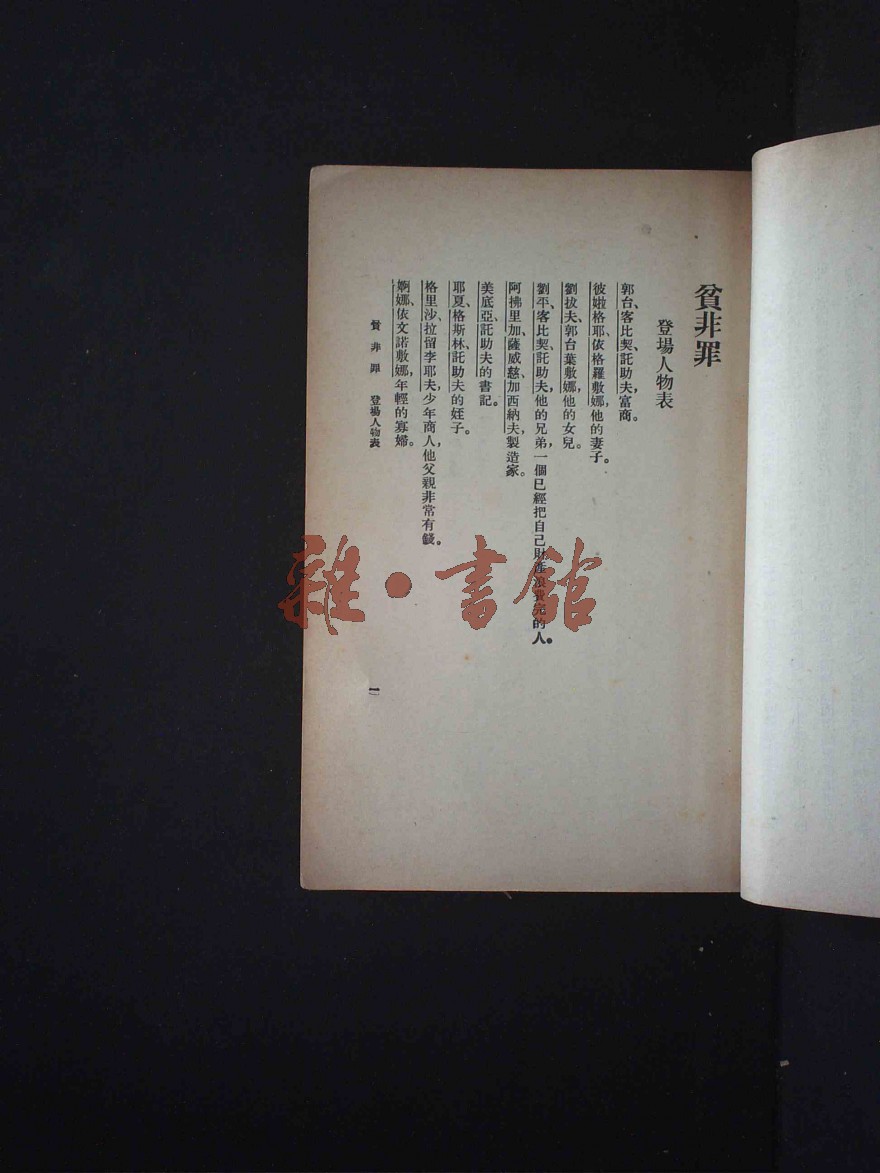 貧非罪
登場人物表
郭台、客比契、託助夫，富商。
彼啦格耶、依格羅敷娜，他的妻子。
劉拔夫、郭台葉敷娜，他的女兒。
劉平、客比契、託助夫，他的兄弟，一個已經把自己財產浪費完的人。
阿拂里加、薩威慈、加西納夫，製造家。
美底亞，託助夫的書記。
耶夏、格斯林，託助夫的姪子。
格里沙、拉留李耶夫，少年商人，他父親非常有錢。
婀娜、依文諾敷娜，年輕的寡婦。
貧非罪 登場人物表
一
雜·書館